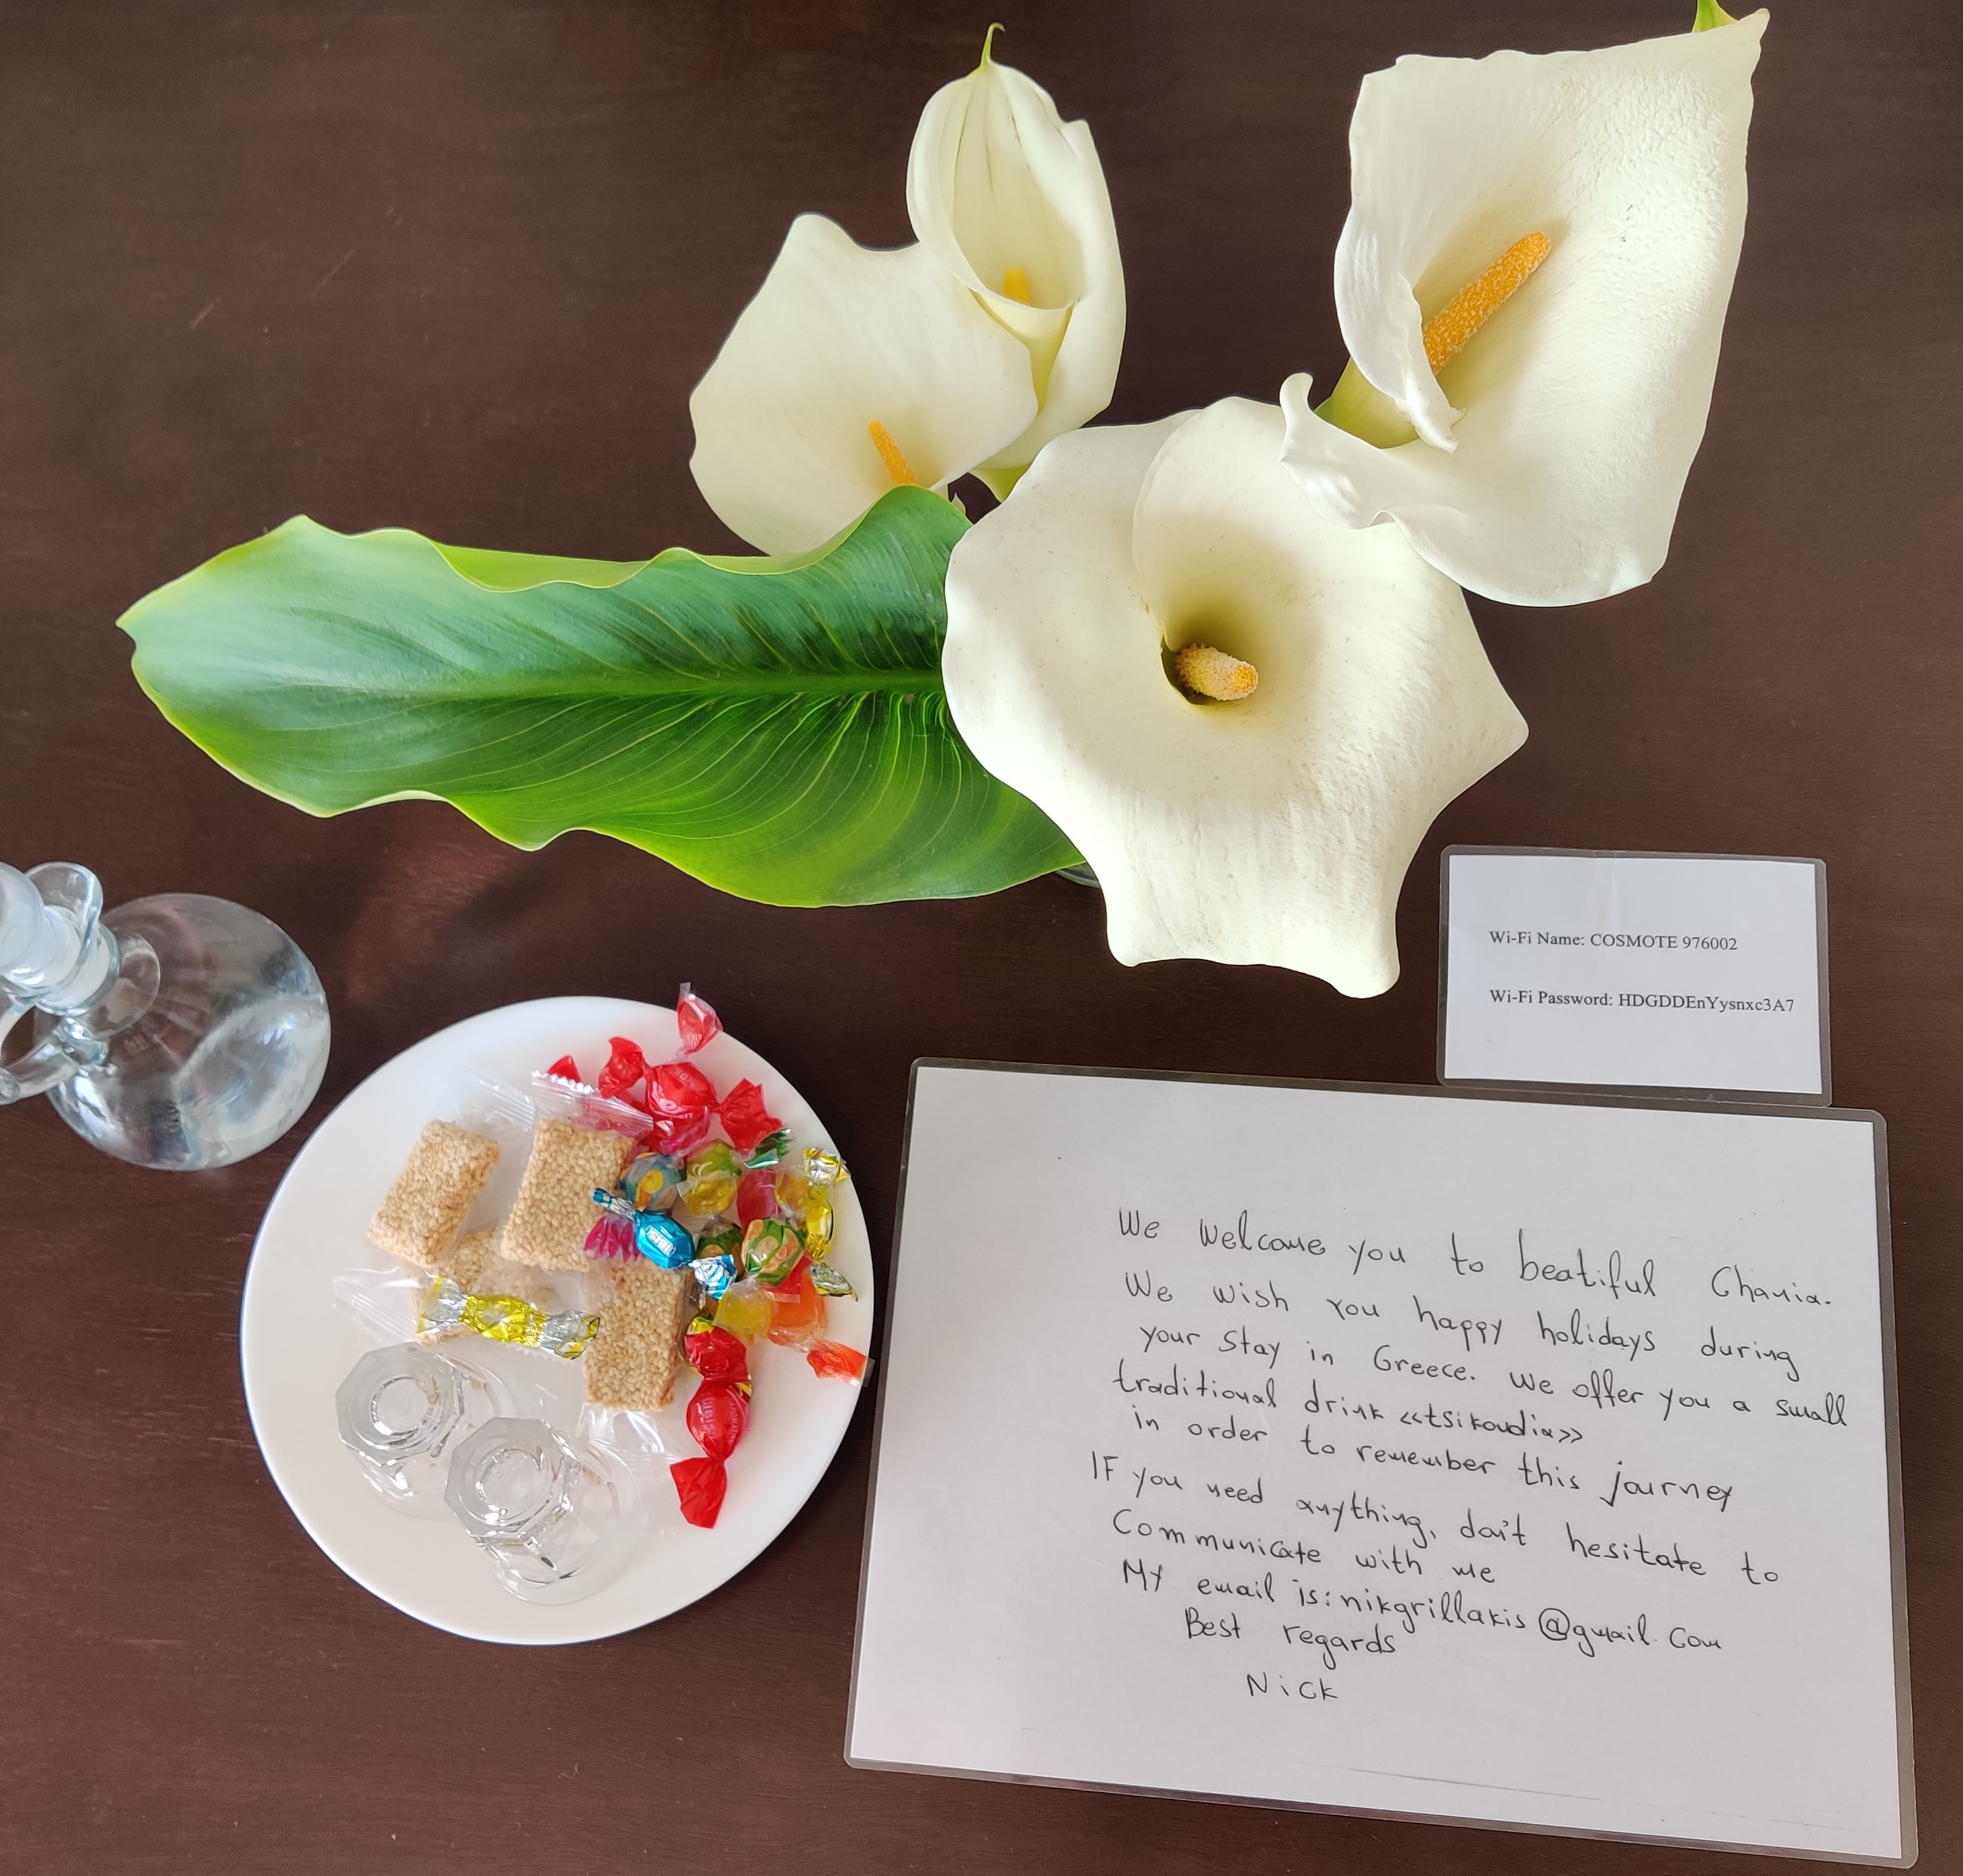 Wi-Fi Name: COSMOTE 976002
Wi-Fi Password: HDGDDEnYysnxc3A7
We welcome you to beatiful Chania.
We wish you happy holidays during
your stay in Greece. We offer you a small
traditional drink «tsikoudia»
in order to remember this journey
IF you need anything, don't hesitate to
Communicate with me
My email is: nikgrillakis@gmail.com
Best regards
Nick